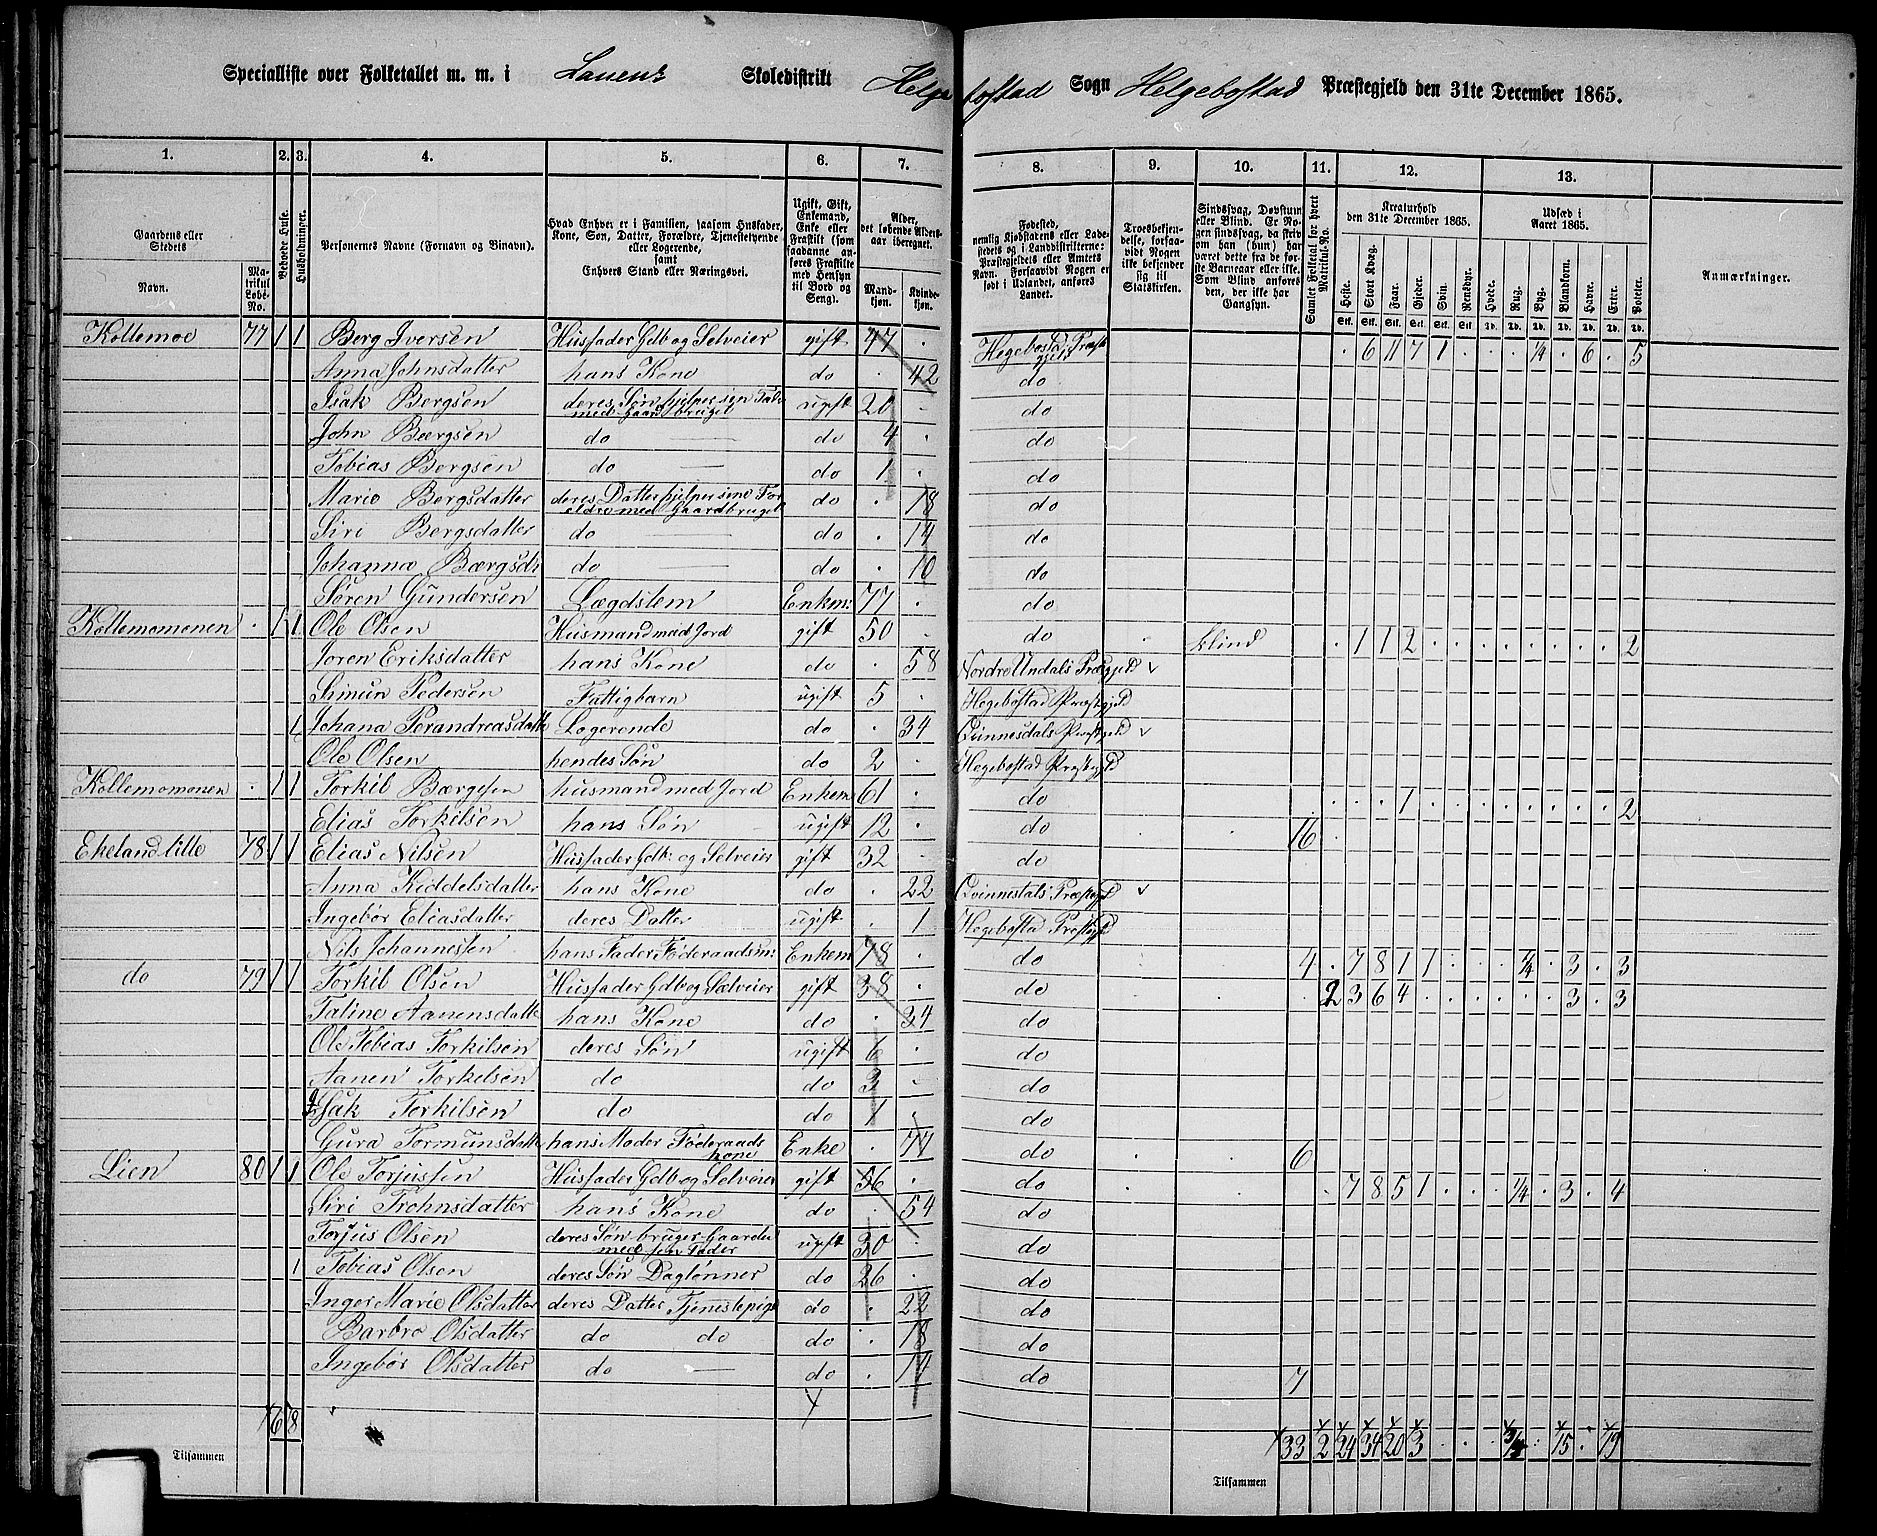 Specialliste over Folketallet m. m. i Lauens Skoledistrikt Helgebostad Sogn Helgebostad Præstegjeld den 31te December 1865.
1. 2. 3. 4. 5. 6. 7. 8. 9. 10. 11. 12. 13.
Gaardens eller Stedets Navn. Matrikul Løbe-No.
Beboede Huse.
Husholdninger.
Personernes Navne (Fornavn og Binavn).
Hvad Enhver er i Familien, saasom Husfader, Kone, Søn, Datter, Forældre, Tjenestetyende eller Logerende, samt Enhvers Stand eller Næringsvei.
Ugift, Gift, Enkemand, Enke eller Fraskilt (som saadanne anføres Fraskilte med Hensyn til Bord og Seng).
Alder, det løbende Alders-aar iberegnet. Mandkjøn. Kvindekjøn.
Fødested, nemlig Kjøbstadens eller Ladestedets og i Landdistrikterne: Præstegjeldets eller Amtets Navn. Forsaavidt Nogen er født i Udlandet, anføres Landet.
Troesbekjendelse, forsaavidt Nogen ikke bekjender sig til Statskirken.
Sindssvag, Døvstum eller Blind. Er Nogen sindssvag, da skriv om han (hun) har været dette fra de første Barneaar eller ikke. Som Blind anføres den, der ikke har Gangsyn.
Samlet Folketal for hvert Matrikul-No.
Kreaturhold den 31te December 1865. Heste. Stort Kvæg. Faar. Gjeder. Svin. Rensdyr.
Stk. Stk. Stk. Stk. Stk. Stk.
Udsæd i Aaret 1865. Hvede. Rug. Byg. Blandkorn. Havre. Erter. Poteter.
Td. Td. Td. Td. Td. Td. Td.
Anmærkninger.
Kollemoe 77 1 1 Berg Iversen Husfader Gdb og Selveier gift 47 . Hegebostad Præstgjeld . 6 11 7 1 . . . ¼ . 6 . 5
Anna Johnsdatter hans Kone do . 42 do
Isak Bergsen deres Søn hjelper sin Fader med Gaardbruget ugift 20 . do
John Bærgsen do do 4 . do
Tobias Bergsen do do 1 . do
Marie Bergsdatter deres Datter hjelper sine Forældre med Gaardbruget do . 18 do
Siri Bergsdatter do do . 14 do
Johanna Bærgsdt do do . 10 do
Søren Gundersen Lægdslem Enkem: 77 . do
Kollemomonen . 1 1 Ole Olsen Husmand med Jord gift 50 . do . blind . . 1 1 2 . . . . . . . . 2
Joren Eriksdatter hans Kone do . 58 Nordre Undals Prægjeld
Simun Pedersen Fattigbarn ugift 5 . Hegebostad Præstgjeld
1 Johana Perandreasdatte Logerende do . 34 Qvinnesdals Præstgjeld
Ole Olsen hendes Søn do 2 . Hegebostad Præstegjeld
Kollemomonen . 1 1 Torkil Bærgesen husmand med Jord Enkem 61 . do . . . 1 . . . . . . . . . 2
Elias Torkilsen hans Søn ugift 12 . do . . 16 .
Ekeland lille 78 1 1 Elias Nilsen Husfader Gdb: og Selveier gift 32 . do
Anna Kiddelsdatter hans Kone do . 22 Qvinnestals Præstegjeld
Ingebør Eliasdatter deres Datter ugift . 1 Hegebostad Præstegjeld
Nils Johannessen hans Fader Føderaadsm: Enkem 78 . do . . 4 . 7 8 1 1 . . . ¼ . 3 . 3
do 79 1 1 Torkil Olsen Husfader Gdb og Sælveier gift 38 . do . . . 2 3 6 4 . . . . . . 3 . 3
Taline Aanensdatte hans Kone do . 34 do
Ole Tobias Torkilsen deres Søn ugift 6 . do
Aanen Torkelsen do do 3 . do
Isak Torkilsen do do 1 . do
Gura Tormunsdatte hans Moder Føderaadskone Enke . 77 do . . 6
Lien 80 1 1 Ole Torjussen Husfader Gdb og Selveier gift 56 . do . . . 7 8 5 1 . . . ¼ . 3 . 4
Siri Trohnsdatter hans Kone do . 54 do
Torjus Olsen deres Søn bruger Gaarden med sin Fader ugift 30 . do
1 Tobias Olsen deres Søn Daglønner do 26 . do
Inger Marie Olsdatter deres Datter Tjenestepige do . 22 do
Barbro Olsdatter do do do . 18 do
Ingebør Olsdatter do do . 14 do 7
6 8 33 2 24 34 20 3 . . . ¾ . 15 . 19
Tilsammen Tilsammen